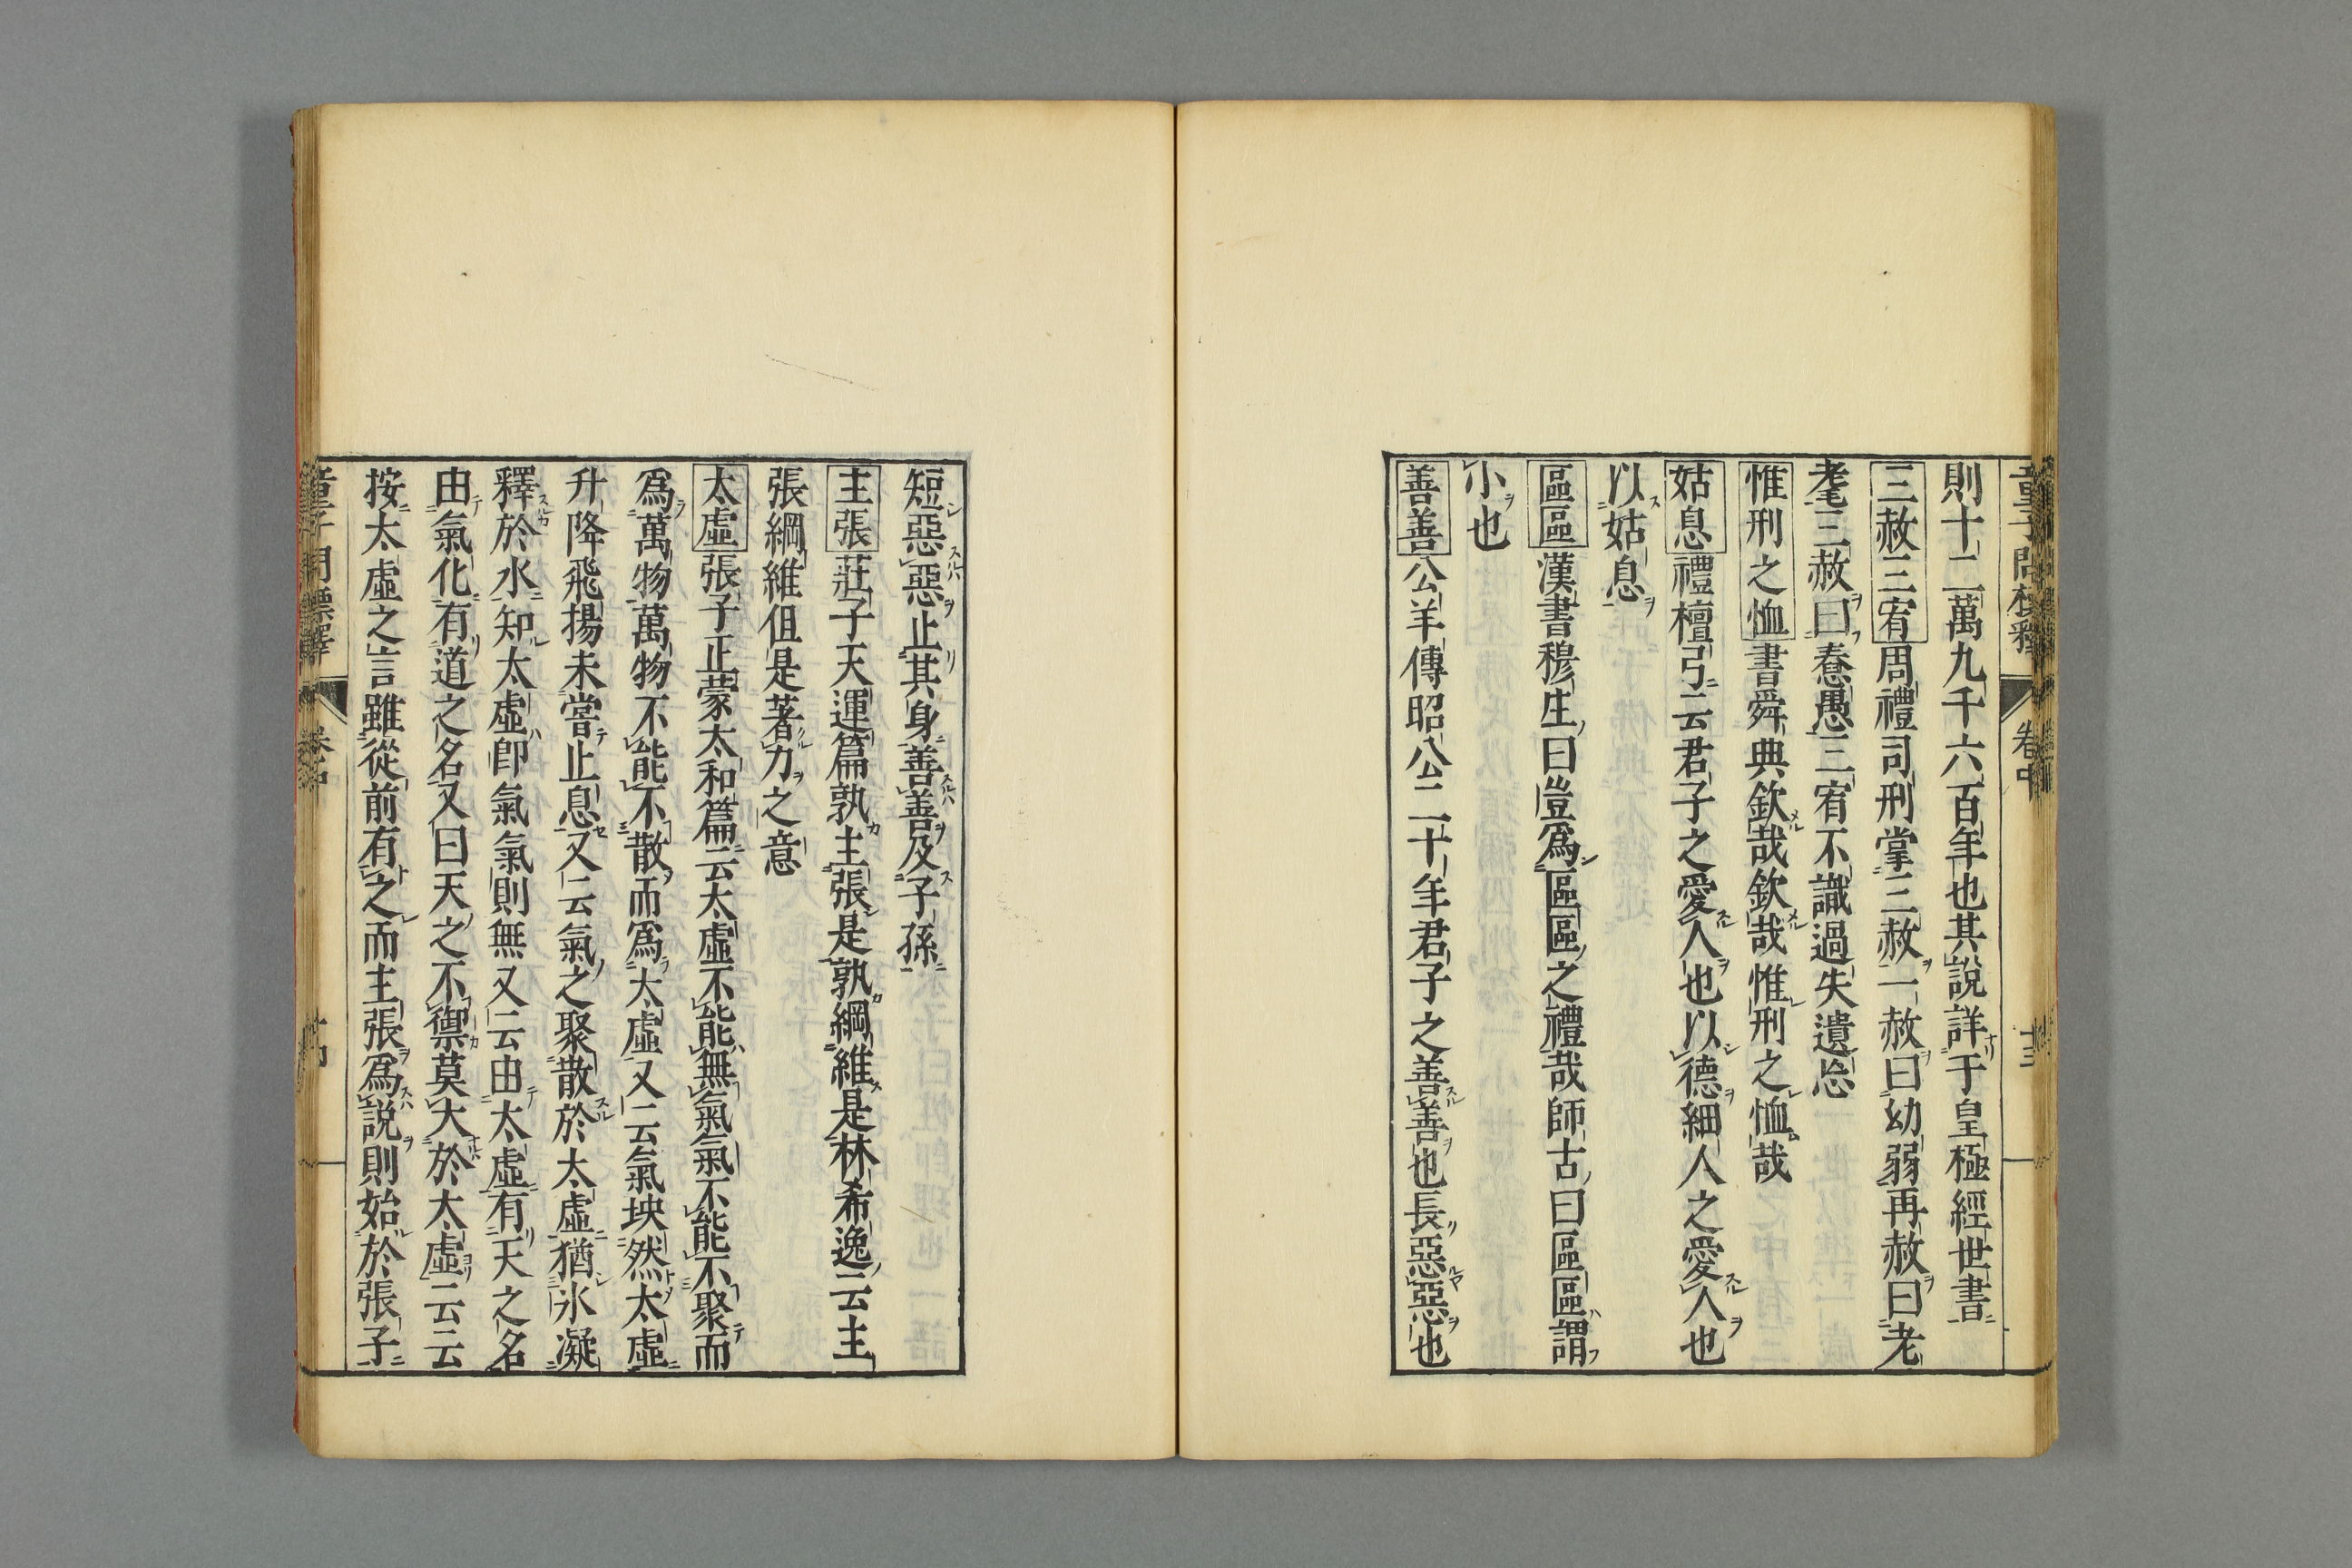 則十二萬九千六百年也其說詳于皇極經世書
三赦三宥周禮司刑掌三赦一赦曰幼弱再赦曰老
耄三赦曰惷愚三宥不識過失遺忘
惟刑之恤書舜典欽哉欽哉惟刑之恤哉
姑息禮檀弓云君子之愛人也以德細人之愛人也
以姑息
區區漢書穆生曰豈爲區區之禮哉師古曰區區謂
小也
善善公羊傳昭公二十年君子之善善也長惡惡也
短惡惡止其身善善及子孫
主張莊子天運篇孰主張是孰綱維是林希逸云主
張綱維但是著力之意
太虛張子正蒙太和篇云太虛不能無氣氣不能不聚而
爲萬物萬物不能不散而爲太虛又云氣坱然太虛
升降飛揚未嘗止息又云氣之聚散於太虛猶氷凝
釋於水知太虛卽氣氣則無又云由太虛有天之名
由氣化有道之名又曰天之不禦莫大於太虛云云
按太虛之言雖從前有之而主張爲說則始於張子
童子問標釋 卷中